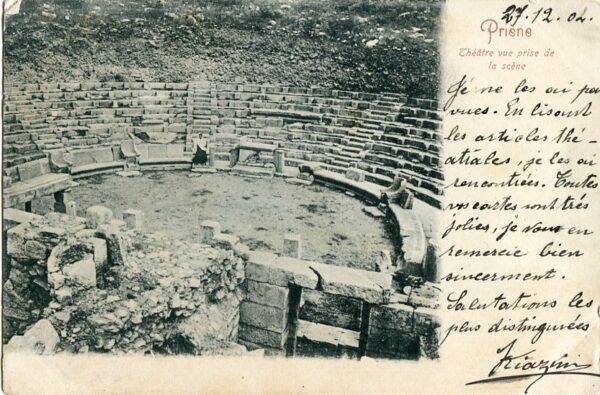 27.12.02.
Priène
Théâtre vue prise de
la scène
Je ne les ai pas
vues. En lisant
les articles thé-
atrales, je les ai
rencontrées. Toutes
vos cartes sont très
jolies, je vous en
remercie bien
sincerment.
Salutations les
plus distinguées